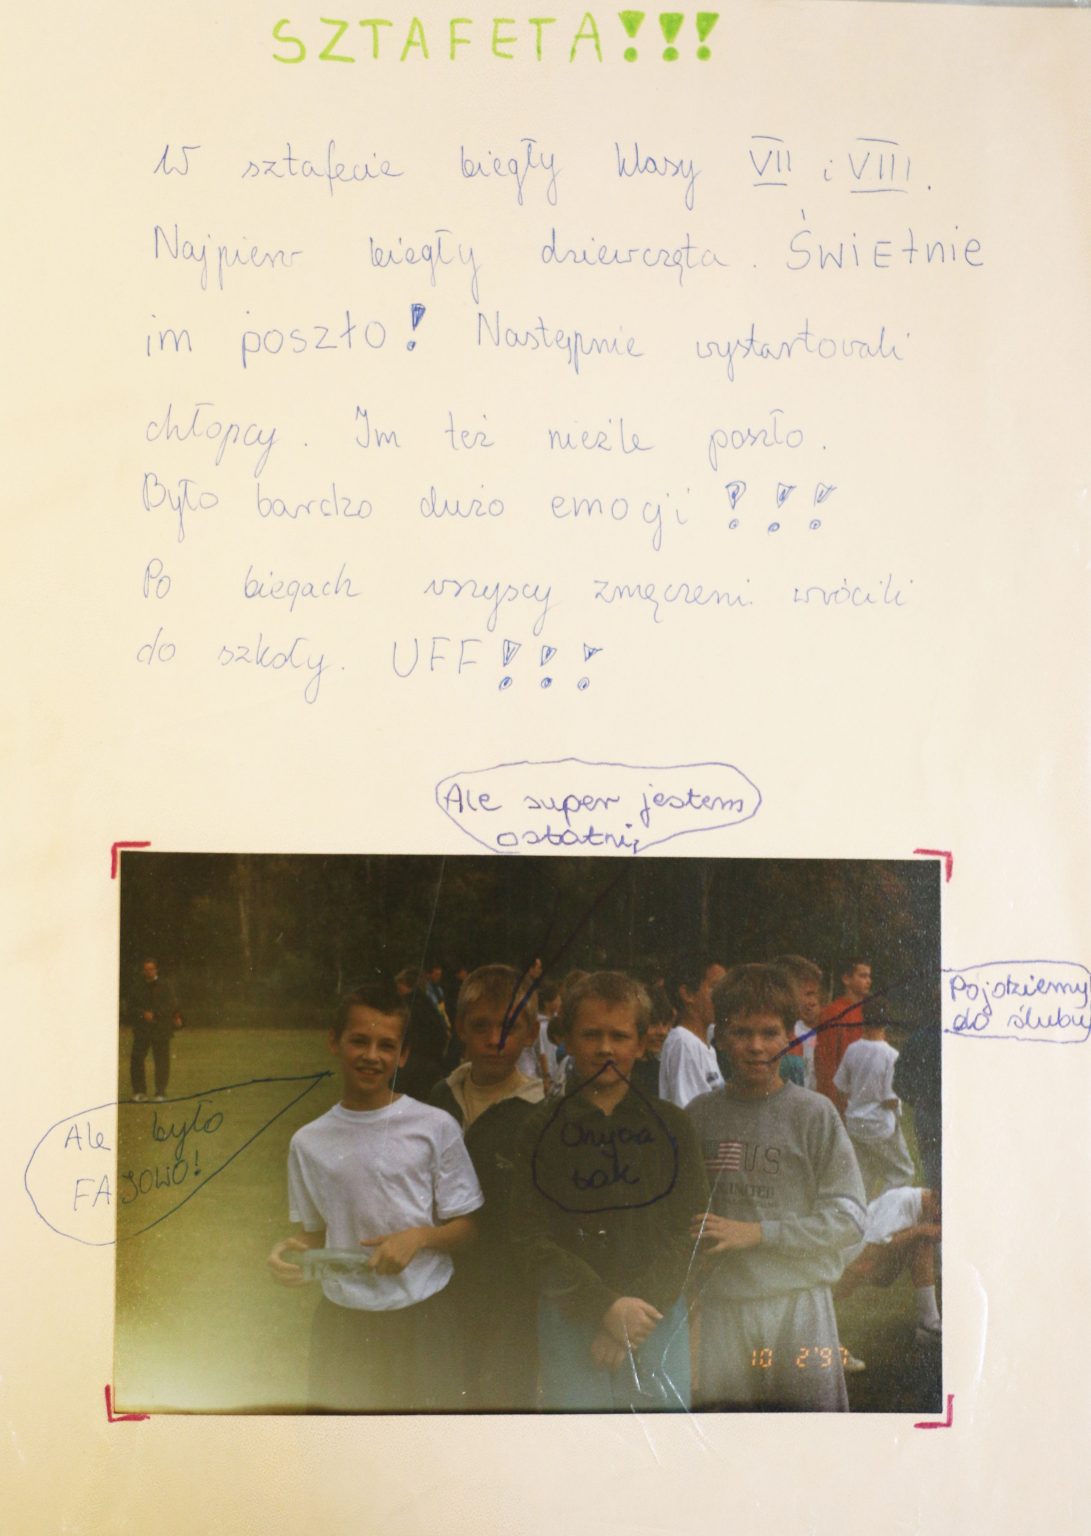 SZTAFETA!!!
W sztafecie biegły klasy VII i VIII.
Najpierw biegły dziewczęta. ŚWIEtniE
im poszło! Następnie wystartowali
chłopcy. Im też nieźle poszło.
Było bardzo dużo emocji!!!
Po biegach wszyscy zmęczeni wrócili
do szkoły. UFF!!!
Ale super jestem
ostatni,
Pojdziemy
do ślubu
Ale było
FAJOWO!
Chyba
tak
U.S
UNLIMITED
10 2'97